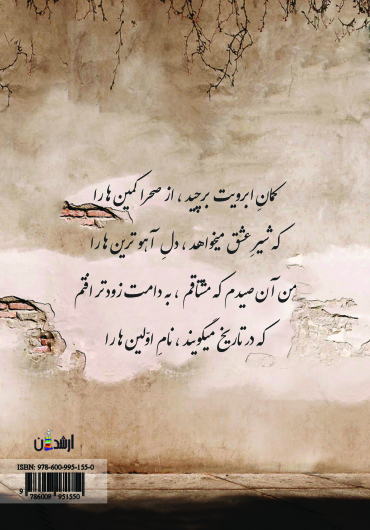 کمانِ ابرویت برچید ، از صحرا کمین ها را
که شیرِ عشق میخواهد ، دلِ آهو ترین ها را
من آن صیدم که مشتاقم ، به دامت زودتر افتم
که در تاریخ میگویند ، نامِ اوّلین ها را
ارشدان
ISBN: 978-600-995-155-0
9 786009 951550